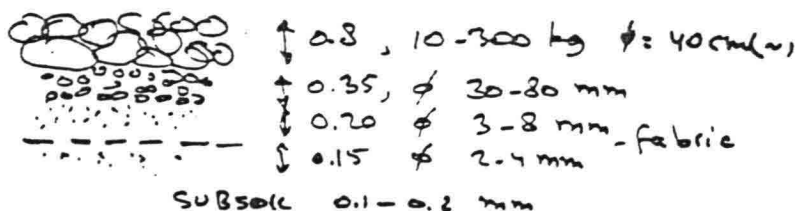 0.8 , 10-300 kg ϕ = 40cm(~)
0.35, ϕ 30-80 mm
0.20 ϕ 3-8 mm
- fabric
0.15 ϕ 2-4 mm
SUBSOIL 0.1-0.2 mm